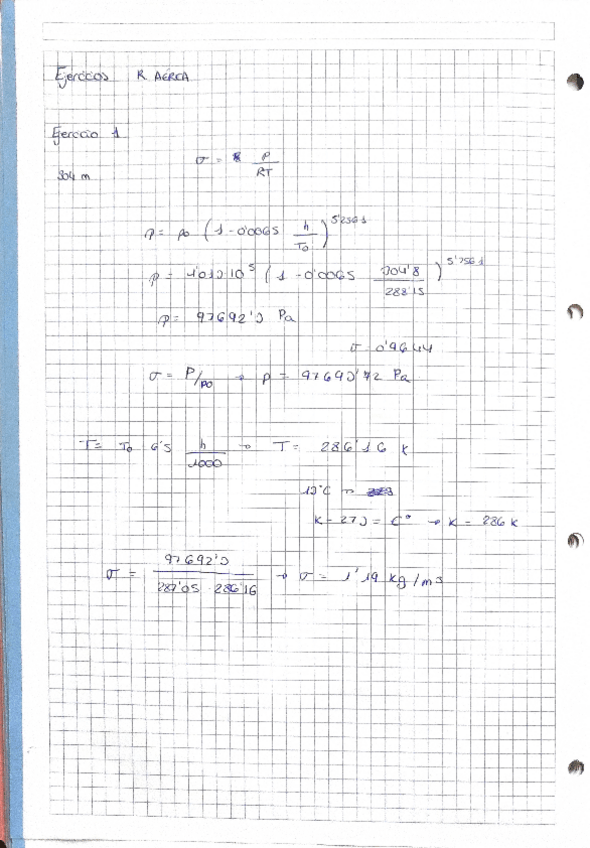 Ejercicios R. AÉREA
Ejercicio 1
304 m
σ = P / RT
p = p0 (1 - 0'0065 h / T0)^5'2561
p = 1'013·10^5 (1 - 0'0065 304'8 / 288'15)^5'2561
p = 97692'3 Pa
σ 0'9644
σ = P/p0 → p = 97693'72 Pa
T = T0 6'5 h / 1000 → T = 286'16 K
13°C →
K - 273 = C° → K = 286 K
σ = 97692'3 / 287'05 · 286'16 → σ = 1'19 kg/m3